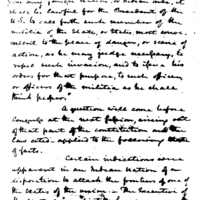 shall be lawful for the President of the
U.S. to call forth such number of the
militia of the State, or States most conve-
nient to the place of danger, or scene of
action, as he may judge necessary to
repel such invasion, and to issue his
order for that purpose, to such officer
or officers of the militia as he shall
think proper.
A question will come before
Congress at the next session, arising out
of that part of the constitution and the
law acts applies to the following state
of facts.
Certain indications were
apparent in an Indian Nation of
disposition to attack the frontiers of one of
the States of the Union. The Executive of